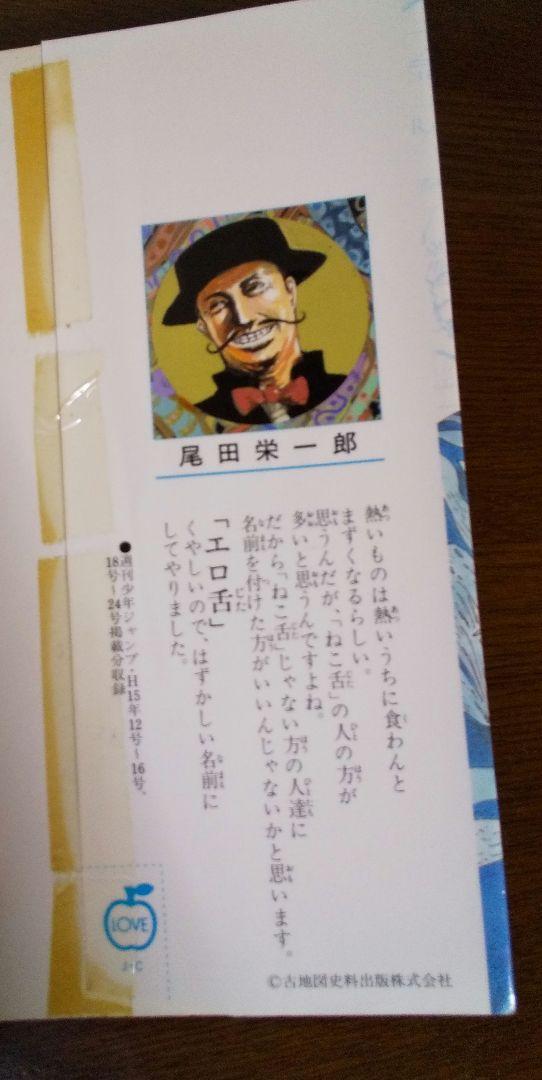 尾田栄一郎
熱いものは熱いうちに食わんと
まずくなるらしい。
思うんだが、「ねこ舌」の人の方が
多いと思うんですよね。
だから「ねこ舌」じゃない方の人達に
名前を付けた方がいいんじゃないかと思います。
「エロ舌」
くやしいので、はずかしい名前に
してやりました。
●週刊少年ジャンプ・H15年12号〜16号、
18号〜24号掲載分収録
LOVE
J・C
©古地図史料出版株式会社